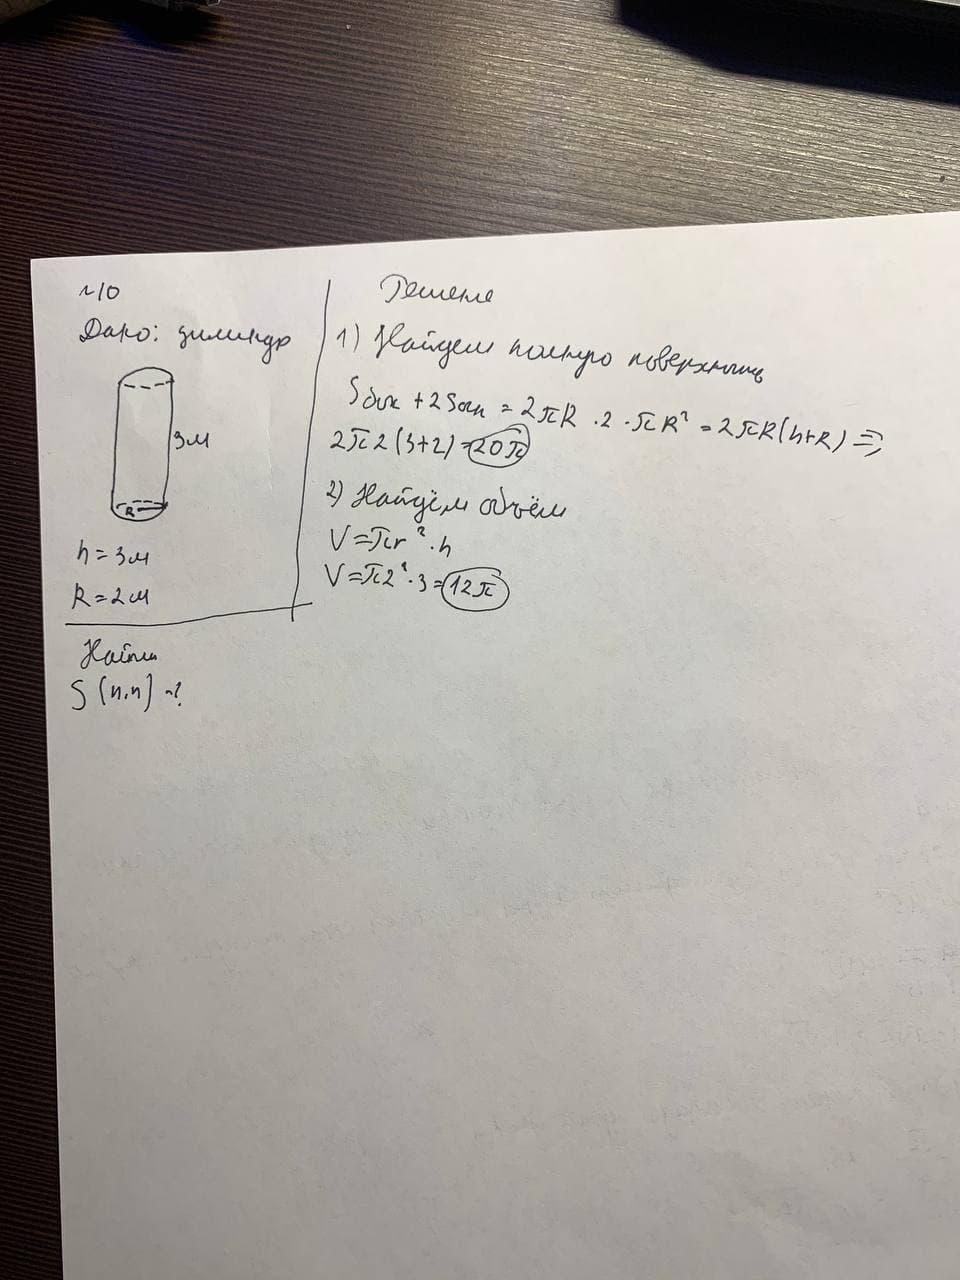 №10
Дано: цилиндр
3м
R
h = 3м
R = 2м
Найти
S (п.п) -?
Решение
1) Найдем полную поверхность
Sбок + 2Sосн = 2πR · 2 · πR² = 2πR(h+R) =>
2π2(3+2) = 20π
2) Найдём объём
V = πr² · h
V = π2² · 3 = 12π